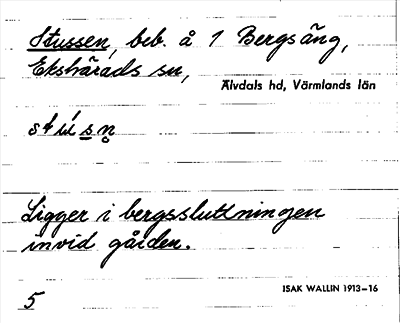 Stussen, beb. å 1 Bergsäng,
Ekshärads sn,
Älvdals hd, Värmlands län
stúsn̥
Ligger i bergssluttningen
invid gården.
5
ISAK WALLIN 1913–16